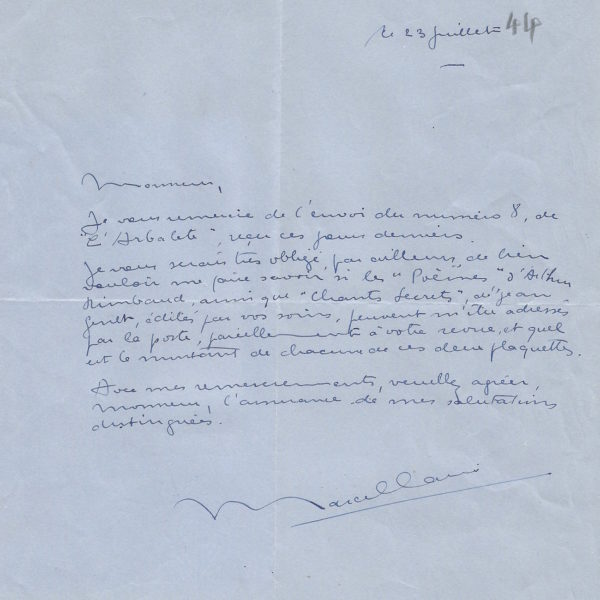 le 23 juillet 44
Monsieur,
Je vous remercie de l'envoi du numéro 8, de
"L'Arbalète", reçu ces jours derniers.
Je vous serais très obligé, par ailleurs, de bien
vouloir me faire savoir si les "Poèmes" d'Arthur
Rimbaud, ainsi que "Chants Secrets", de Jean
Genet, édités par vos soins, peuvent m'être adressés
par la poste, pareillement à votre revue, et quel
est le montant de chacune de ces deux plaquettes.
Avec mes remerciements, veuillez agréer,
monsieur, l'assurance de mes salutations
distinguées.
Marcel